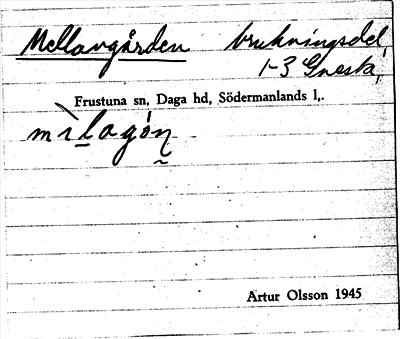 Mellangården brukningsdel,
1-3 Gnesta,
Frustuna sn, Daga hd, Södermanlands l,.
mìlagón
Artur Olsson 1945